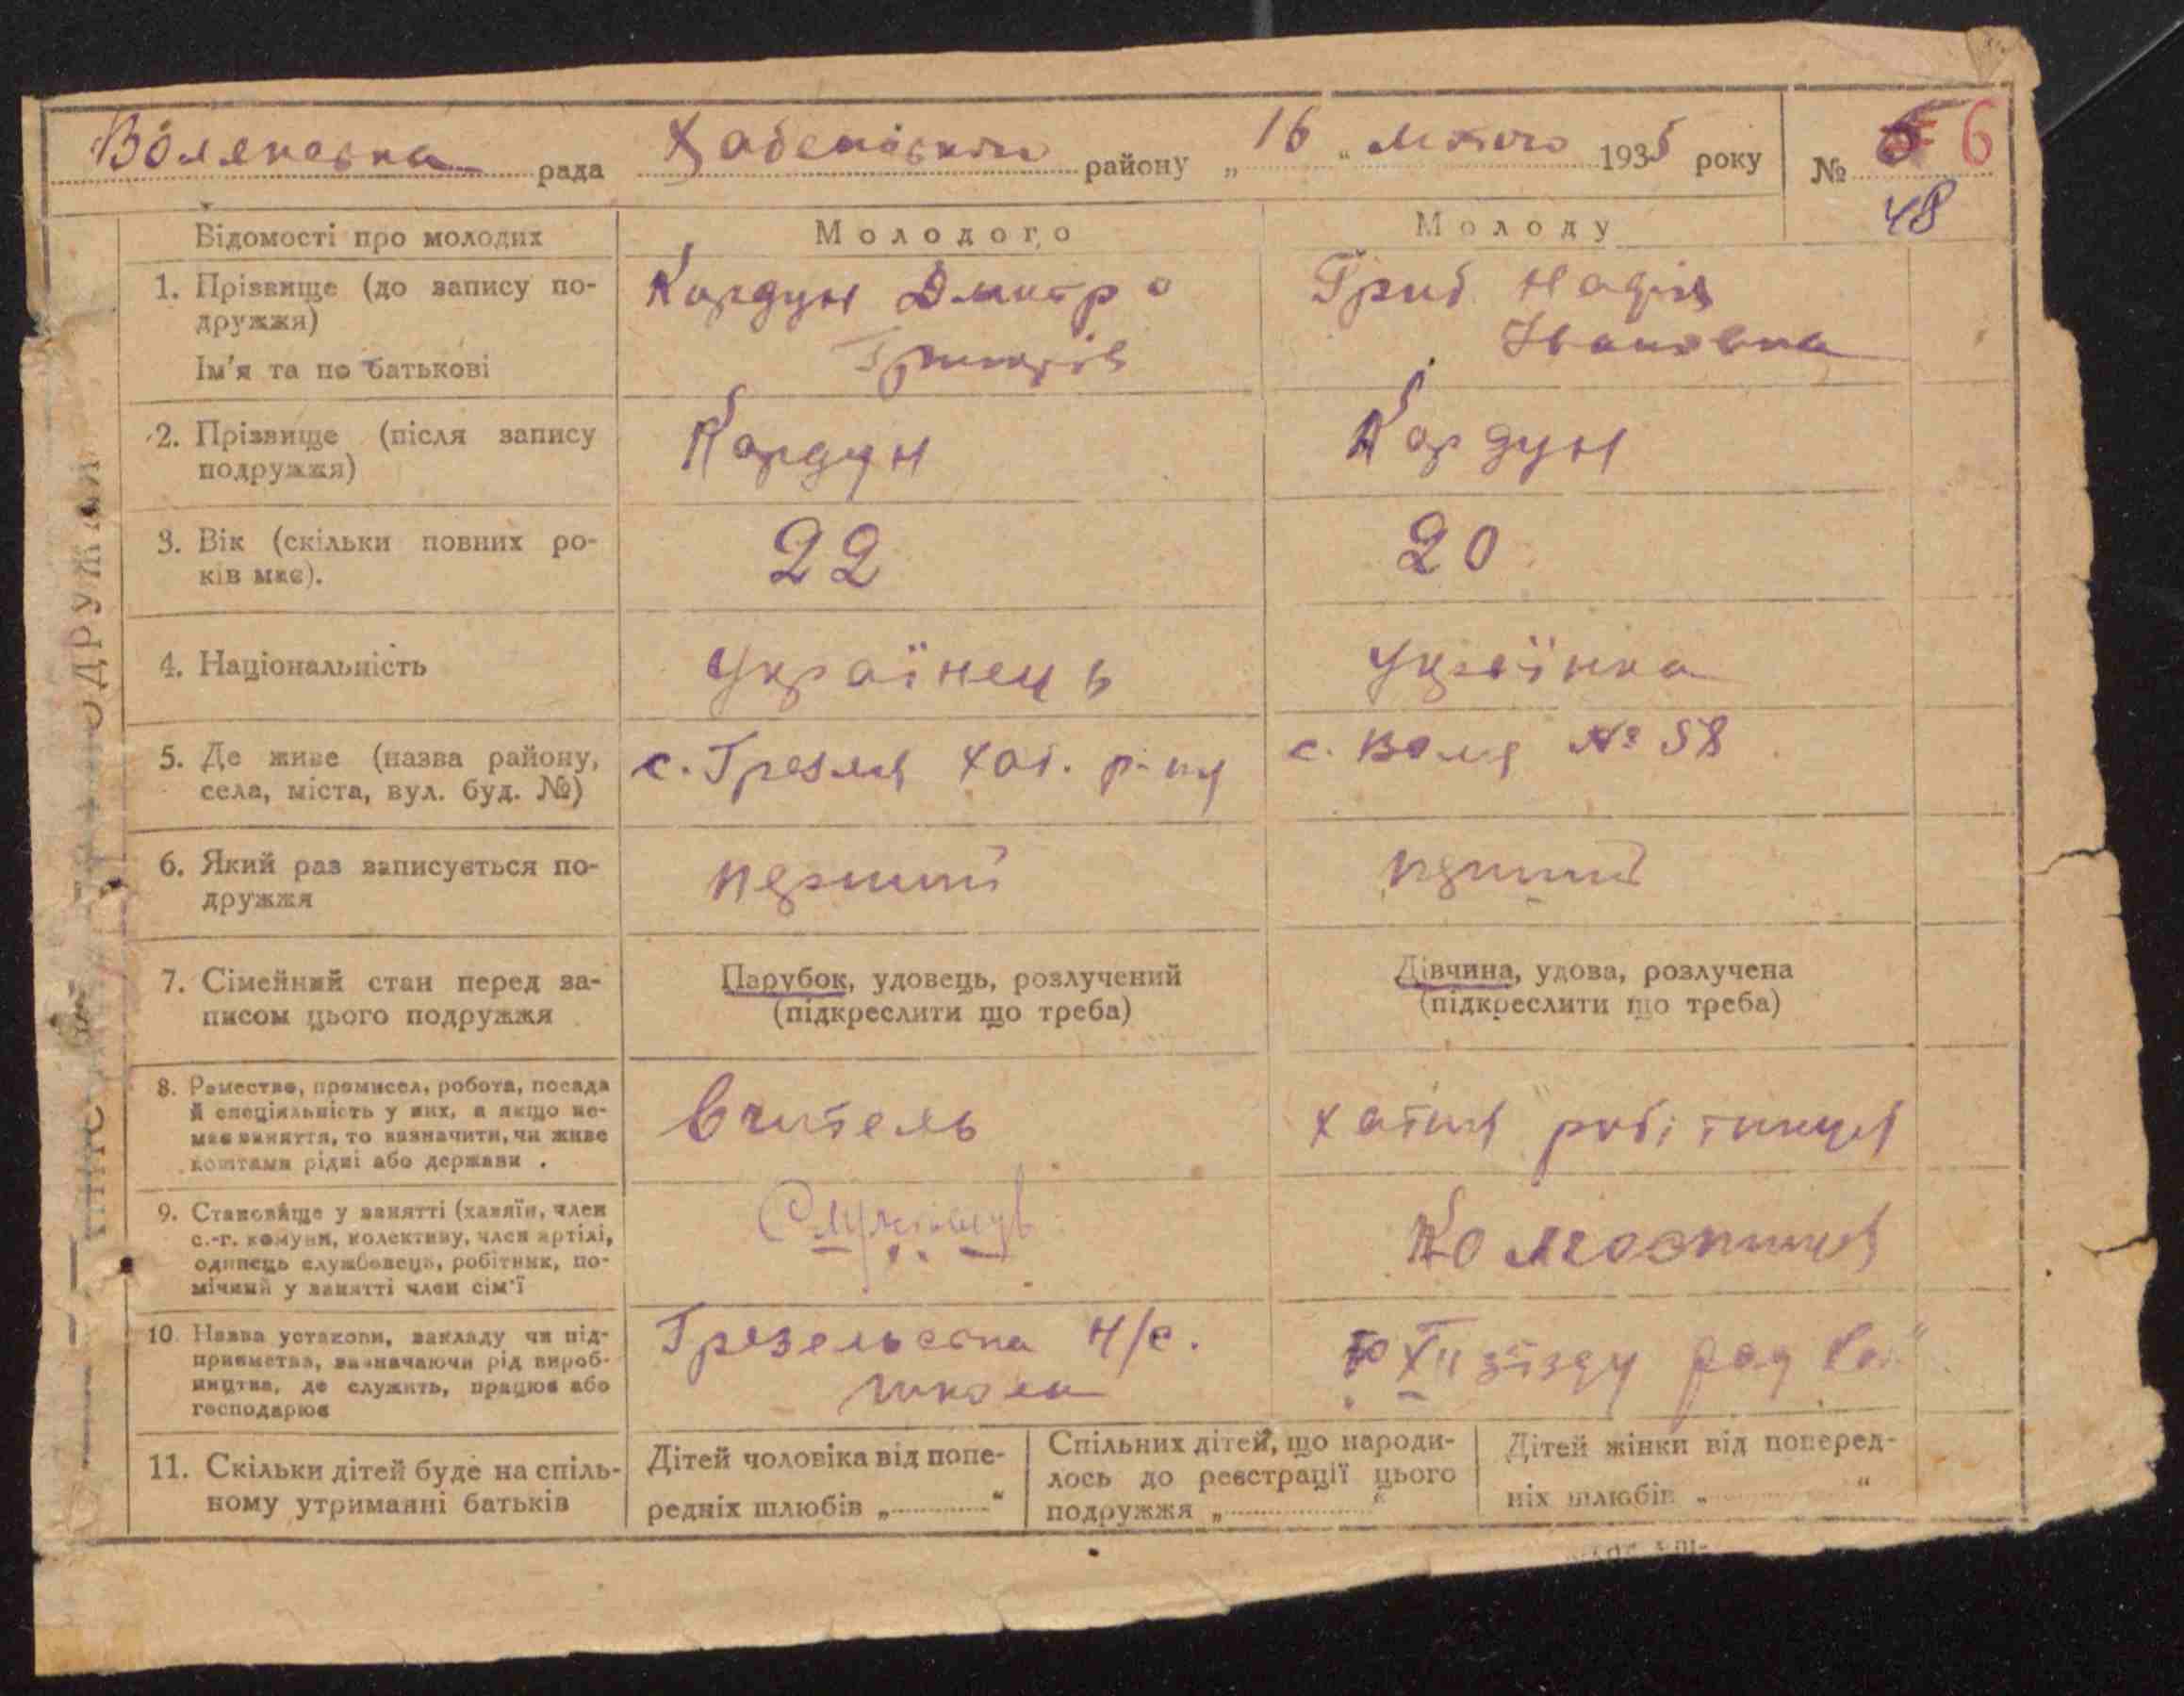 Волянська рада Хабенського району „16“ лютого 1935 року № 6
48
Відомості про молодих
Молодого
Молоду
1. Прізвище (до запису по-
дружжя)
Ім'я та по батькові
Кордун Дмитро
Григорів
Гриб Надія
Івановна
2. Прізвище (після запису
подружжя)
Кордун
Кордун
3. Вік (скільки повних ро-
ків має).
22
20
4. Національність
Українець
Українка
5. Де живе (назва району,
села, міста, вул. буд. №)
с. Грезля Хаб. р-ну
с. Воля № 58
6. Який раз записується по-
дружжя
перший
перший
7. Сімейний стан перед за-
писом цього подружжя
Парубок, удовець, розлучений
(підкреслити що треба)
Дівчина, удова, розлучена
(підкреслити що треба)
8. Ремество, промисел, робота, посада
й спеціяльність у них, а якщо не-
має заняття, то зазначити, чи живе
коштами рідні або держави .
вчитель
хатня робітниця
9. Становище у занятті (хазяїн, член
с.-г. комуни, колективу, член артілі,
одинець службовець, робітник, по-
мічний у занятті член сім'ї
Колгоспниця
10. Назва установи, закладу чи під-
приємства, зазначаючи рід вироб-
ництва, де служить, працює або
господарює
Грезельська н/с.
школа
зїзду рад
11. Скільки дітей буде на спіль-
ному утриманні батьків
Дітей чоловіка від попе-
редніх шлюбів „ “
Спільних дітей, що народи-
лось до реєстрації цього
подружжя „ “
Дітей жінки від поперед-
ніх шлюбів „ “